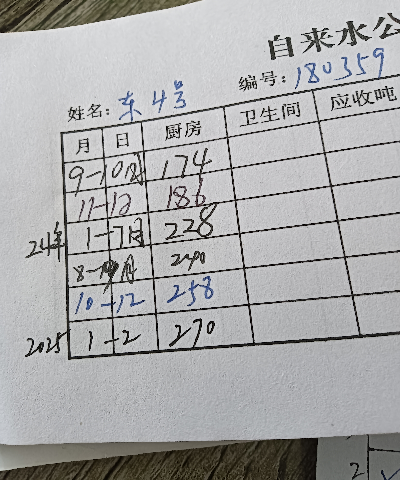 自来水公
编号：180359
姓名：东4号
月 日 厨房 卫生间 应收吨
9-10月 174
11-12 186
24年 1-7月 228
8-9月 240
10-12 258
2025 1-2 270
2